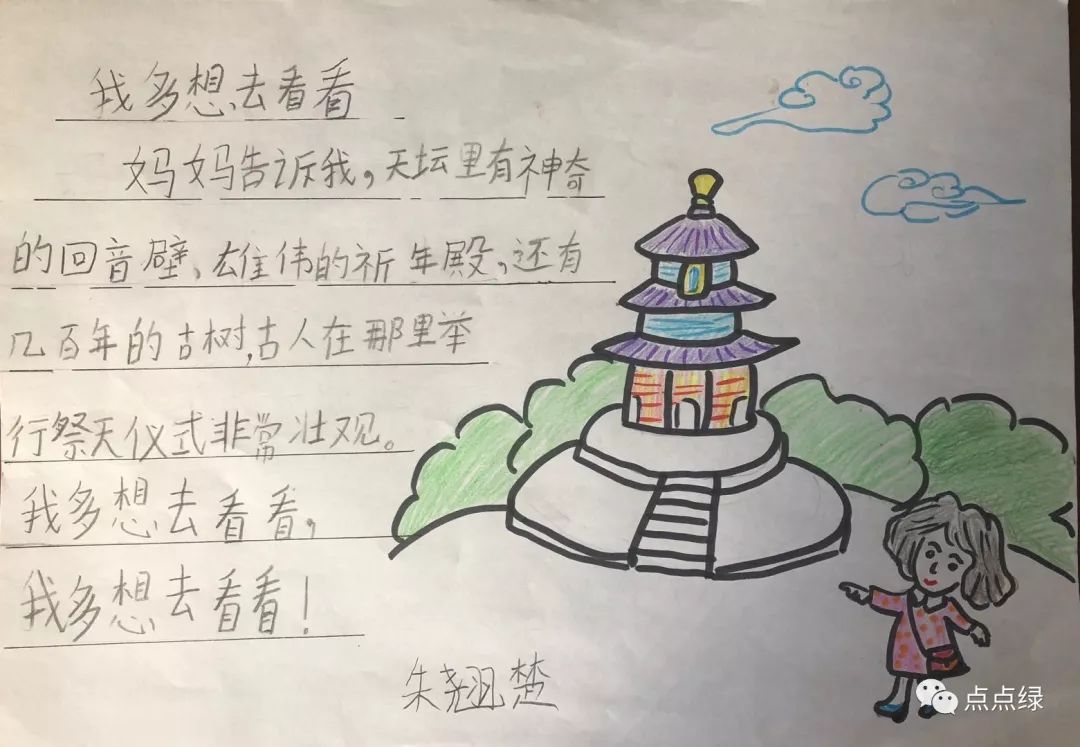 我多想去看看
妈妈告诉我，天坛里有神奇
的回音壁、雄伟的祈年殿，还有
几百年的古树，古人在那里举
行祭天仪式非常壮观。
我多想去看看，
我多想去看看！
朱翘楚
点点绿